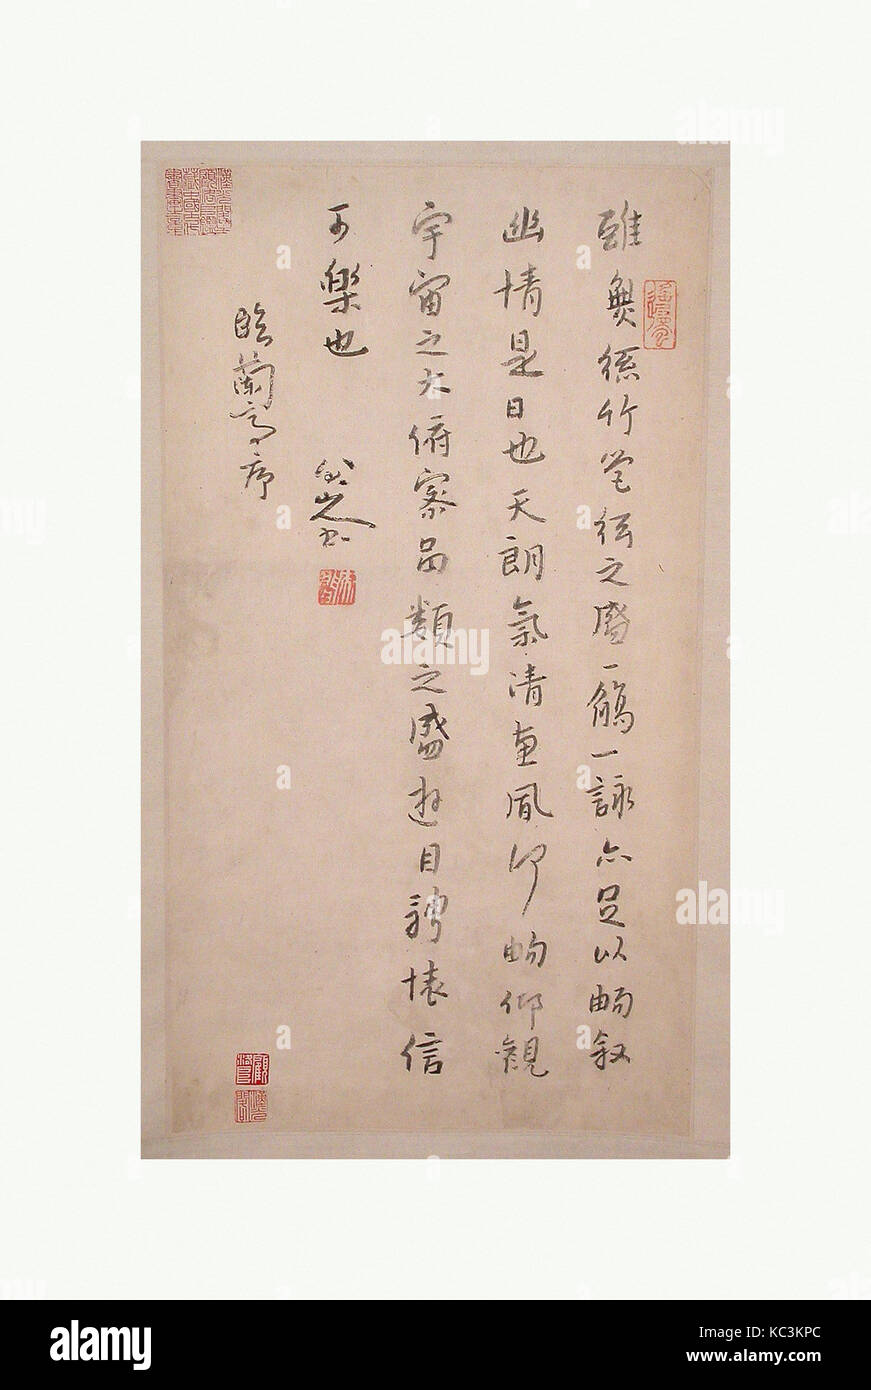 雖無絲竹管弦之盛一觴一詠亦足以暢叙
幽情是日也天朗氣清惠風和暢仰觀
宇宙之大俯察品類之盛遊目騁懷信
可樂也
八大山人
臨蘭亭序
alamy
alamy
alamy
alamy
alamy
Image ID: KC3KPC
www.alamy.com